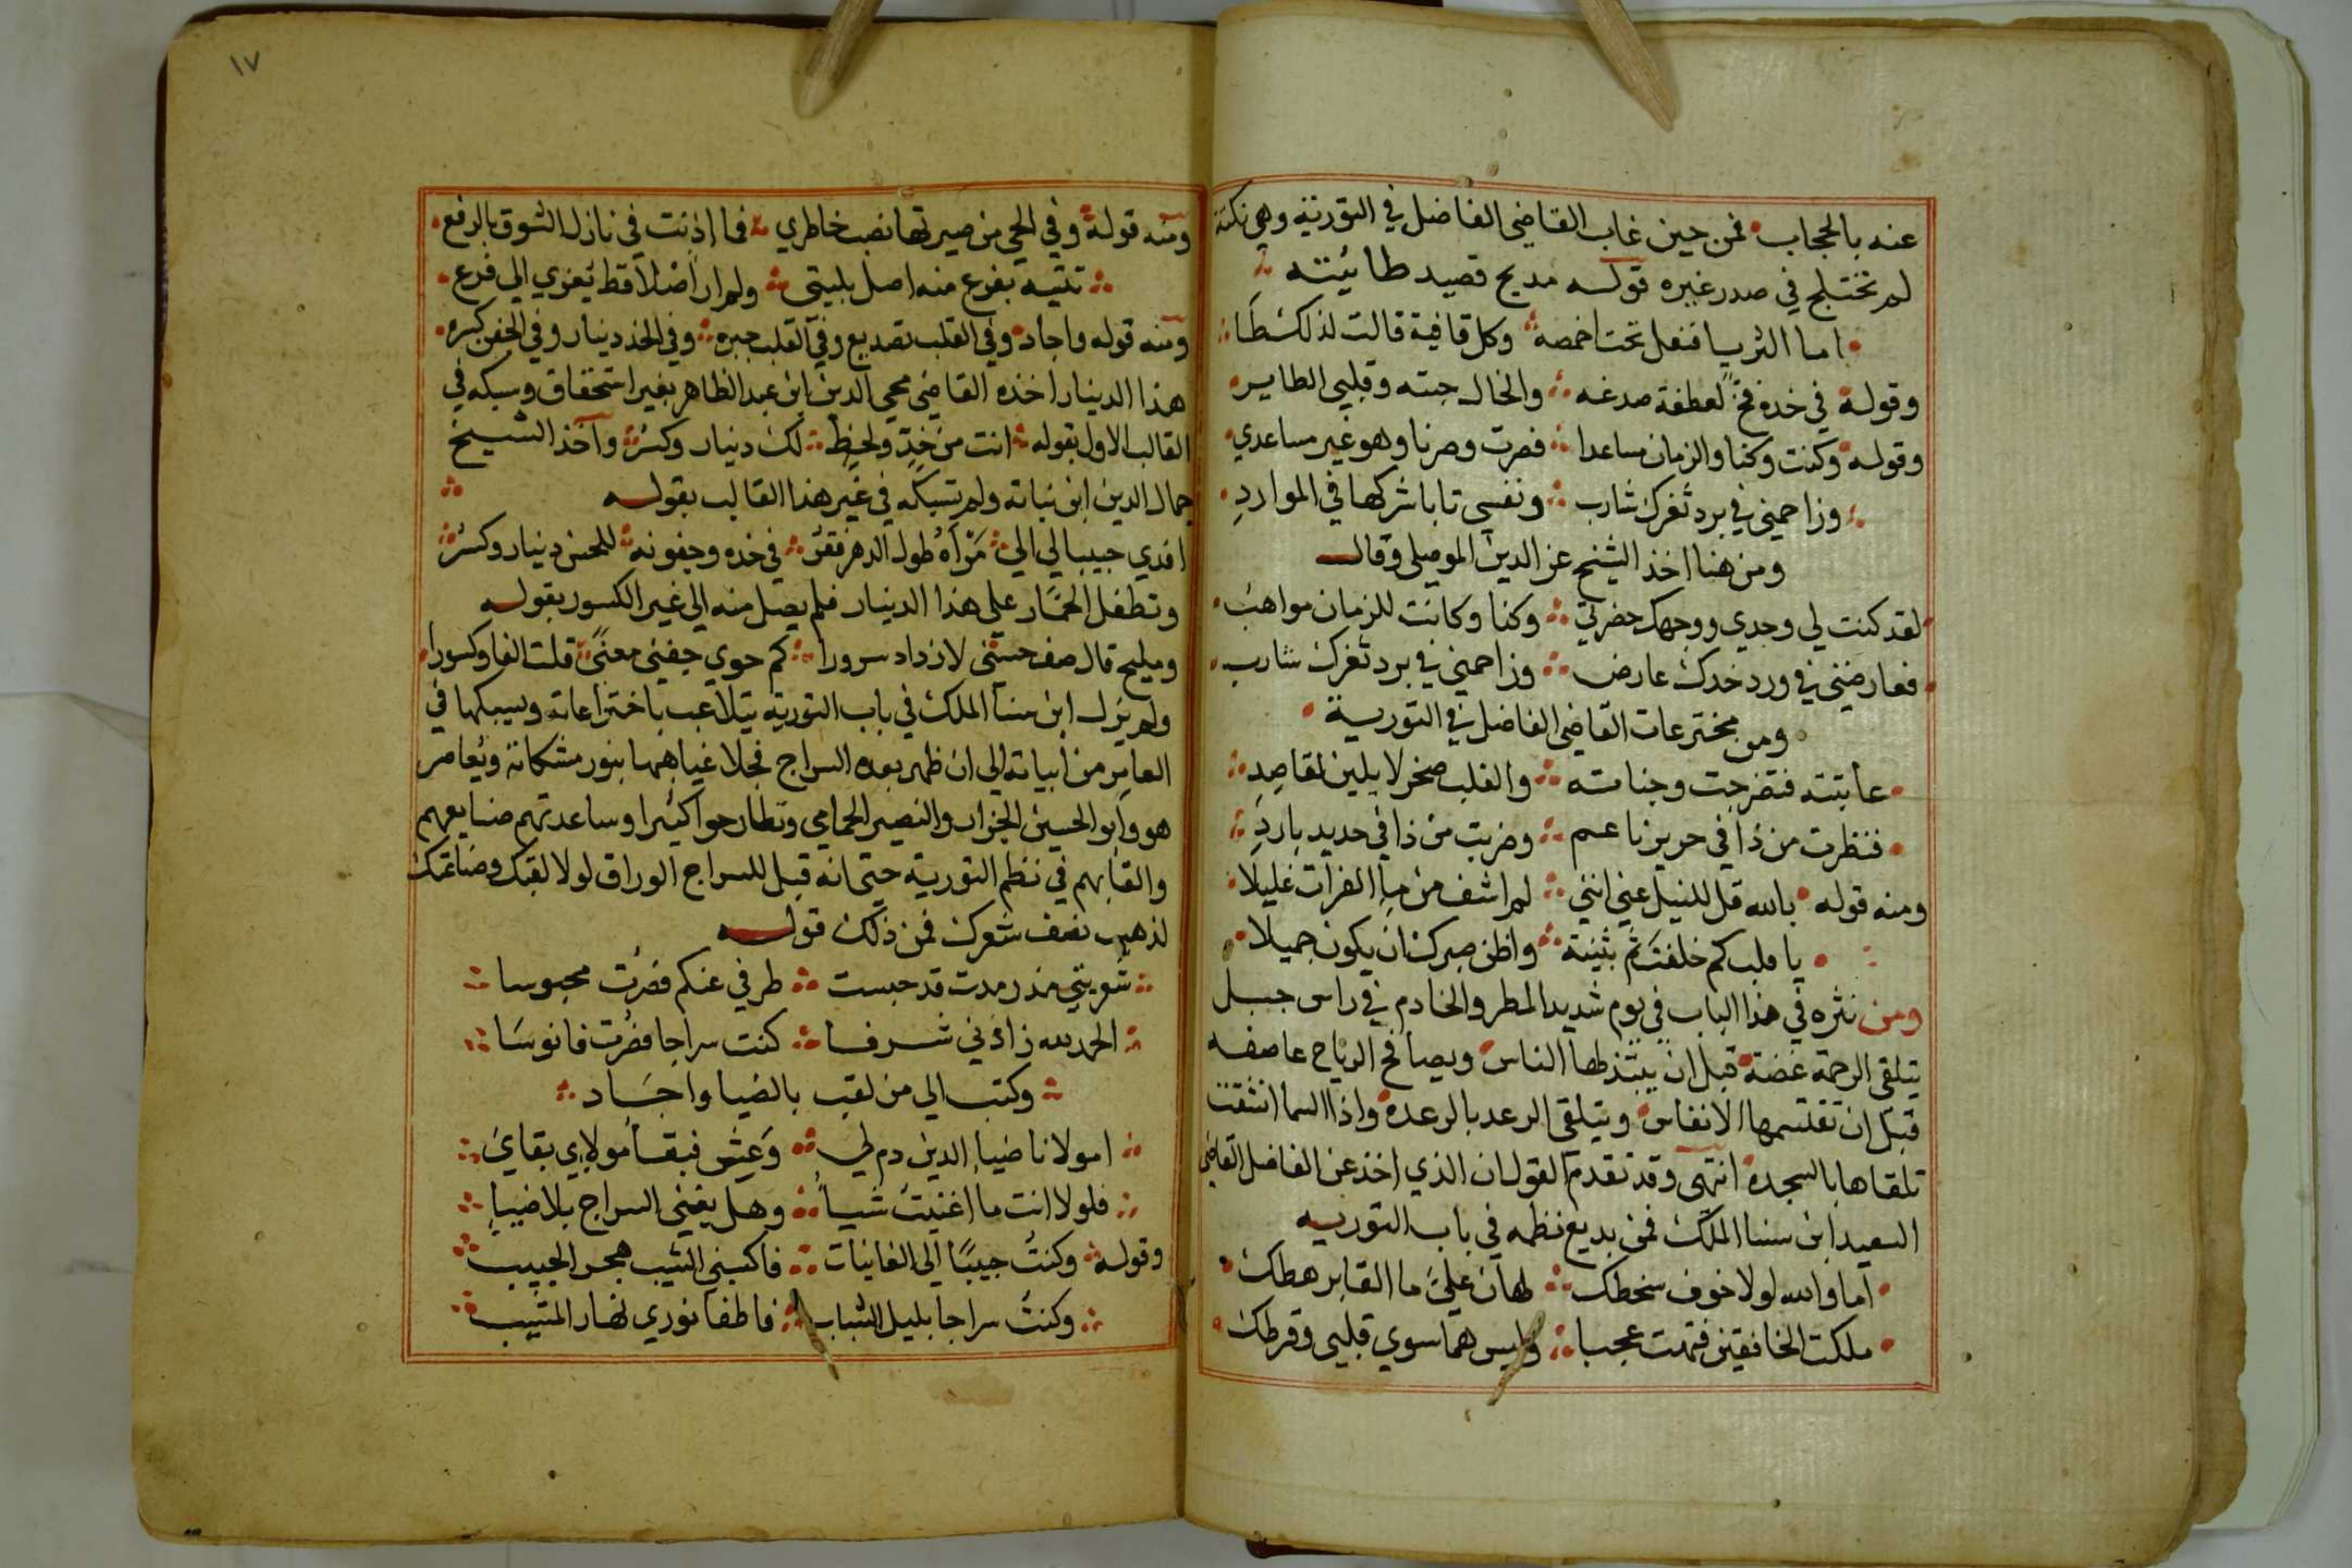 عنه بالحجاب فمن حين غاب القاضي الفاضل في التورية وهي نكتة
لم تختلج في صدر غيره قوله مديح قصيد طائيته
اما الثريا فنعل تحت اخمصه وكل قافية قالت لذلك طا
وقوله في خده فخ لعطفة صدغه والخال حبته وقلبي الطاير
وقوله وكنت وكنا والزمان مساعدا فصرت وصرنا وهو غير مساعدي
وزاحمني في برد ثغرك شارب ونفسي تابا شركها في المواردِ
ومن هنا اخذ الشيخ عز الدين الموصلي وقال
لقد كنت لي وجدي ووجهك حضرتي وكنا وكانت للزمان مواهب
فعارضني في ورد خدك عارض وزاحمني في برد ثغرك شارب
ومن مخترعات القاضي الفاضل في التورية
عاتبته فتضرجت وجناته والقلب صخر لا يلين لقاصِدِ
فنظرت من ذا في حرير ناعم وضربت من ذا في حديد باردِ
ومنه قوله بالله قل للنيل عني انني لم اشف من ماء الفرات غليلا
يا قلب كم خلفتَ ثَم بثينة واظن صبرك ان يكون جميلا
ومن نثره في هذا الباب في يوم شديد المطر والخادم في راس جبل
يتلقى الرحمة غضة قبل ان يبتذلها الناس ويصافح الرياح عاصفه
قبل ان تقتسمها الانفاس ويتلقى الرعد بالرعده واذا السما انشقت
تلقاها بالسجده انتهى وقد تقدم القول ان الذي اخذ عن الفاضل القاضي
السعيد ابن سنا الملك فمن بديع نظمه في باب التوريه
اما والله لولا خوف سخطك لهان علي ما القا برهطك
ملكت الخافقين فتهت عجبا وليس هما سوي قلبي وقرطك
١٧
ومنه قوله وفي الحي من صيرتها نصب خاطري فما اذنت في نازل الشوق بالرفع
تتيه بفرع منه اصل بليتي ولم ار اصْلا قط يُعزي الي فرع
ومنه قوله واجاد وفي القلب تصديع وفي القلب جبره وفي الخد دينار وفي الجفن كسره
هذا الدينار اخذه القاضي محي الدين ابن عبد الظاهر بغير استحقاق وسبكه في
القالب الاول بقوله انت من خدٍ ولحظ لك دينار وكسْر واخذ الشيخ
جمال الدين ابن نباتة ولم يسبكه في غير هذا القالب بقوله
افدي حبيبا لي الي مَرْاهُ طول الدهر فقر في خده وجفونه للحسن دينار وكسْر
وتطفل الحمّار علي هذا الدينار فلم يصل منه الي غير الكسور بقوله
ومليح قال صف حسني لازداد سرورا كم حوي جفني معنًى قلت الفا وكسورا
ولم يزل ابن سنا الملك في باب التورية يتلاعب باختراعاته ويسبكها في
العامر من ابياته الي ان ظهر بعده السراج فجلا غياهبها بنور مشكاته ويُعاصر
هو وابو الحسين الجزار والنصير الحمامي وتطارحوا كثيرا وساعدتهم صنايعهم
والقابهم في نظم التورية حتي انه قيل للسراج الوراق لولا لقبك وصناعتك
لذهب نصف شعرك فمن ذلك قوله
شُوريتي مذ رمدت قد حبست طرفي عنكم فصرت محبوسا
الحمد لله زادني شرفا كنت سراجا فصرت فانوسَا
وكتب الي من لقب بالضيا واجَاد
امولانا ضياء الدين دم لي وَعِش فبقاُ مولاي بقاي
فلولا انت ما اغنيتُ شياُ وهل يغني السراج بلا ضياءِ
وقوله وكنتُ حبيبًا الي الغانيات فاكسبني الشيب هجر الحبيب
وكنت سراجا بليل الشباب فاطفا نوري نهار المشيب